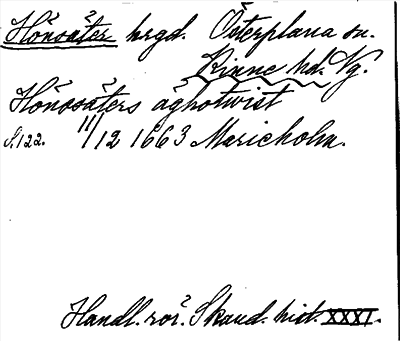 Hönsäter hrgd. Österplana sn.
Kinne hd. Vg.
Hönsäters äghotwist
S. 122. 11/12 1663 Marieholm.
Handl. rör. Skand. hist. XXXI.